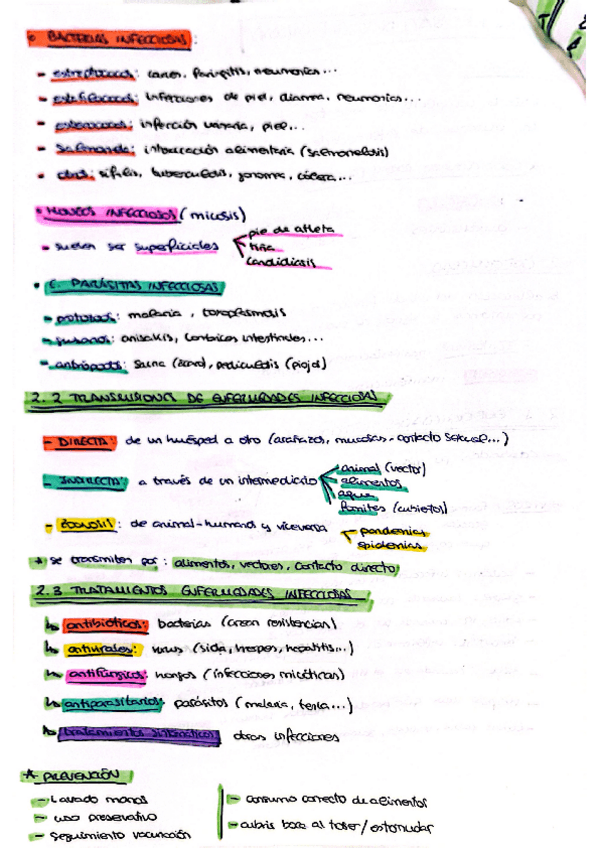 • BACTERIAS INFECCIOSAS:
- estreptococos: caries, faringitis, neumonías...
- estafilococos: infecciones de piel, diarrea, neumonías...
- enterococos: infección urinaria, piel...
- Salmonella: intoxicación alimentaria (salmonelosis)
- otros: sífilis, tuberculosis, gonorrea, cólera...
• HONGOS INFECCIOSOS (micosis)
- suelen ser superficiales
pie de atleta
tiña
candidiasis
• E. PARÁSITAS INFECCIOSAS
- protozoos: malaria, toxoplasmosis
- gusanos: anisakis, lombrices intestinales...
- antrópodos: Sarna (ácaro), pediculosis (piojo)
2.2 TRANSMISIONES DE ENFERMEDADES INFECCIOSAS
- DIRECTA: de un huésped a otro (arañazos, mucosas - contacto sexual...)
- INDIRECTA: a través de un intermediario
animal (vector)
alimentos
agua
fómites (cubiertos)
- ZOONOSIS: de animal-humano y viceversa
pandemias
epidemias
* se transmiten por: alimentos, vectores, contacto directo
2.3 TRATAMIENTOS ENFERMEDADES INFECCIOSAS
↳ antibióticos: bacterias (crean resistencias)
↳ antivirales: virus (sida, herpes, hepatitis...)
↳ antifúngicos: hongos (infecciones micóticas)
↳ antiparasitarios: parásitos (malaria, tenia...)
↳ tratamientos sintomáticos: otras infecciones
* PREVENCIÓN
- Lavado manos
- uso preservativo
- Seguimiento vacunación
- consumo correcto de alimentos
- cubrir boca al toser/estornudar